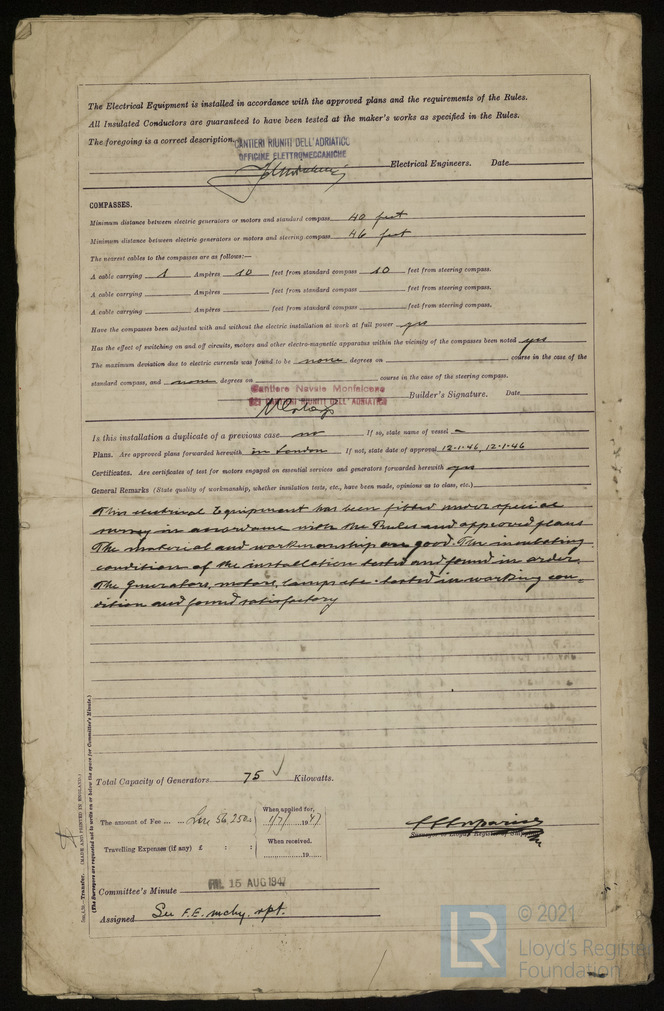 The Electrical Equipment is installed in accordance with the approved plans and the requirements of the Rules.
All Insulated Conductors are guaranteed to have been tested at the maker's works as specified in the Rules.
The foregoing is a correct description.
CANTIERI RIUNITI DELL'ADRIATICO
OFFICINE ELETTROMECCANICHE
Electrical Engineers. Date
COMPASSES.
Minimum distance between electric generators or motors and standard compass 40 feet
Minimum distance between electric generators or motors and steering compass 46 feet
The nearest cables to the compasses are as follows:—
A cable carrying 1 Ampères 10 feet from standard compass 10 feet from steering compass.
A cable carrying Ampères feet from standard compass feet from steering compass.
A cable carrying Ampères feet from standard compass feet from steering compass.
Have the compasses been adjusted with and without the electric installation at work at full power yes
Has the effect of switching on and off circuits, motors and other electro-magnetic apparatus within the vicinity of the compasses been noted yes
The maximum deviation due to electric currents was found to be none degrees on course in the case of the
standard compass, and none degrees on course in the case of the steering compass.
Cantiere Navale Monfalcone
DEI CANTIERI RIUNITI DELL'ADRIATICO
Builder's Signature. Date
Is this installation a duplicate of a previous case no If so, state name of vessel –
Plans. Are approved plans forwarded herewith in London If not, state date of approval 12-1-46, 12-1-46
Certificates. Are certificates of test for motors engaged on essential services and generators forwarded herewith yes
General Remarks (State quality of workmanship, whether insulation tests, etc., have been made, opinions as to class, etc.)
This electrical Equipment has been fitted under special
survey in accordance with the Rules and approved plans
The material and workmanship are good. The insulating
condition of the installation tested and found in order.
The generators, motors, lamps etc. tested in working con-
dition and found satisfactory
Total Capacity of Generators 75 ✓ Kilowatts.
The amount of Fee ... ... Lire 56,250 :
When applied for,
1/7/ 1947
Travelling Expenses (if any) £ : :
When received.
19
Surveyor to Lloyd's Register of Shipping
Committee's Minute FRI. 15 AUG 1947
Assigned See F.E. mchy. rpt.
Transfer. (MADE AND PRINTED IN ENGLAND.)
(The Surveyors are requested not to write on or below the space for Committee's Minute.)
LR
© 2021
Lloyd's Register
Foundation